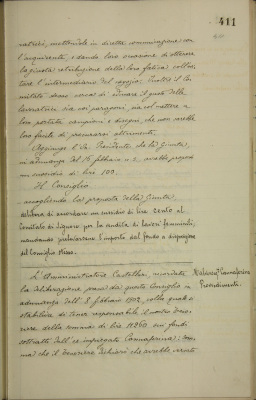 411
natrici, mettendole in diretta comunicazione con
l'acquirente, e dando loro occasione di ottenere
la giusta retribuzione della loro fatica: collo
tare l'intermediario del raggio. Inoltre il Co
mitato stesso cerca di elevare il gusto delle
lavoratrici sia coi paragoni, sia col mettere a
loro portata campioni e disegni, che non sarebbe
loro facile di procurarsi altrimenti.
Aggiunge il Sr. Presidente che la Giunta,
in adunanza del 16 febbraio u. s., avrebbe proposto
un sussidio di lire 100.
Il Consiglio
accogliendo la proposta della Giunta,
delibera di accordare un sussidio di lire cento al
Comitato di Signore per la vendita di lavori femminili,
mandando prelevarsene l'importo dal fondo a disposizione
del Consiglio stesso.
L'Amministratore Castelba, ricordata
la deliberazione presa da questo Consiglio in
adunanza dell' 8 febbraio 1902, colla quale si
stabiliva di tener responsabile il nostro Teso
riere della somma di lire 11260 sui fondi
sottratti dall'ex impiegato Cannaferina; ... 
ma che il Tesoriere dichiarò che avrebbe
Malversaz. Cannaferina
Provvedimenti.